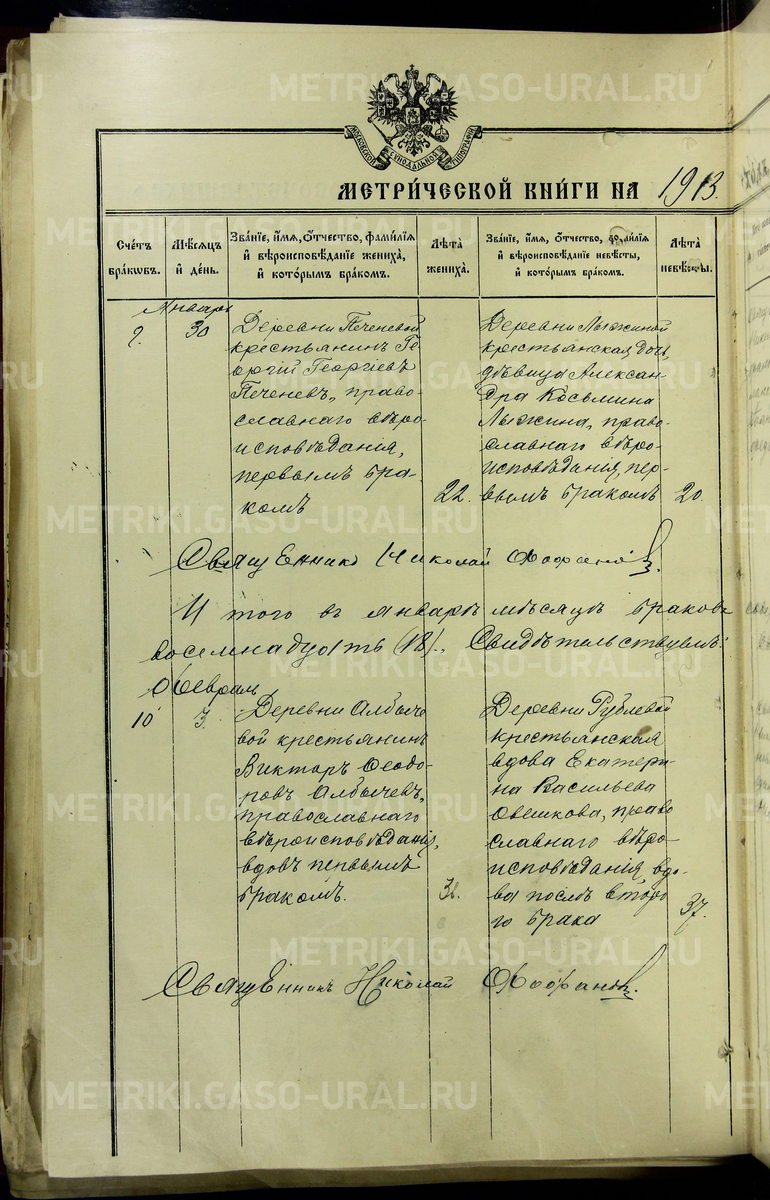 МОСКОВСКОЙ СѴНОДАЛЬНОЙ ТИПОГРАФІИ
МЕТРИ́ЧЕСКОЙ КНИ́ГИ НА 1913.
Сче́тъ бра́кωвъ.
Мѣ́сяцъ и҆ де́нь.
Зва́нїе, и҆́мѧ, ѻ҆́тчество, фами́лїѧ
и҆ вѣроисповѣ́данїе жениха̀,
и҆ кото́рымъ бра́комъ.
Лѣ́та жениха̀.
Зва́нїе, и҆́мѧ, ѻ҆́тчество, фами́лїѧ
и҆ вѣроисповѣ́данїе невѣ́сты,
и҆ кото́рымъ бра́комъ.
Лѣ́та невѣ́сты.
Январь
9. 30
Деревни Печеневой
крестьянинъ Ге-
оргій Георгіевъ
Печеневъ, право-
славнаго вѣро-
исповѣданія,
первымъ бра-
комъ
22.
Деревни Лыжиной
крестьянская дочь
дѣвица Алексан-
дра Косьмина
Лыжина, право-
славнаго вѣро-
исповѣданія, пер-
вымъ бракомъ
20.
Священникъ Николай
Итого въ январѣ мѣсяцѣ браковъ
восемнадцать (18). Свидѣтельствуемъ:
Февраль
10 3.
Деревни Албыче-
вой крестьянинъ
Викторъ Ѳеодо-
ровъ Албычевъ,
православнаго
вѣроисповѣданія,
вдовъ первымъ
бракомъ.
Деревни Рублевой
крестьянская
вдова Екатери-
на Васильева
православнаго вѣро-
исповѣданія, вдо-
ва послѣ второ-
го брака
37.
Священникъ Николай
METRIKI.GASO-URAL.RU